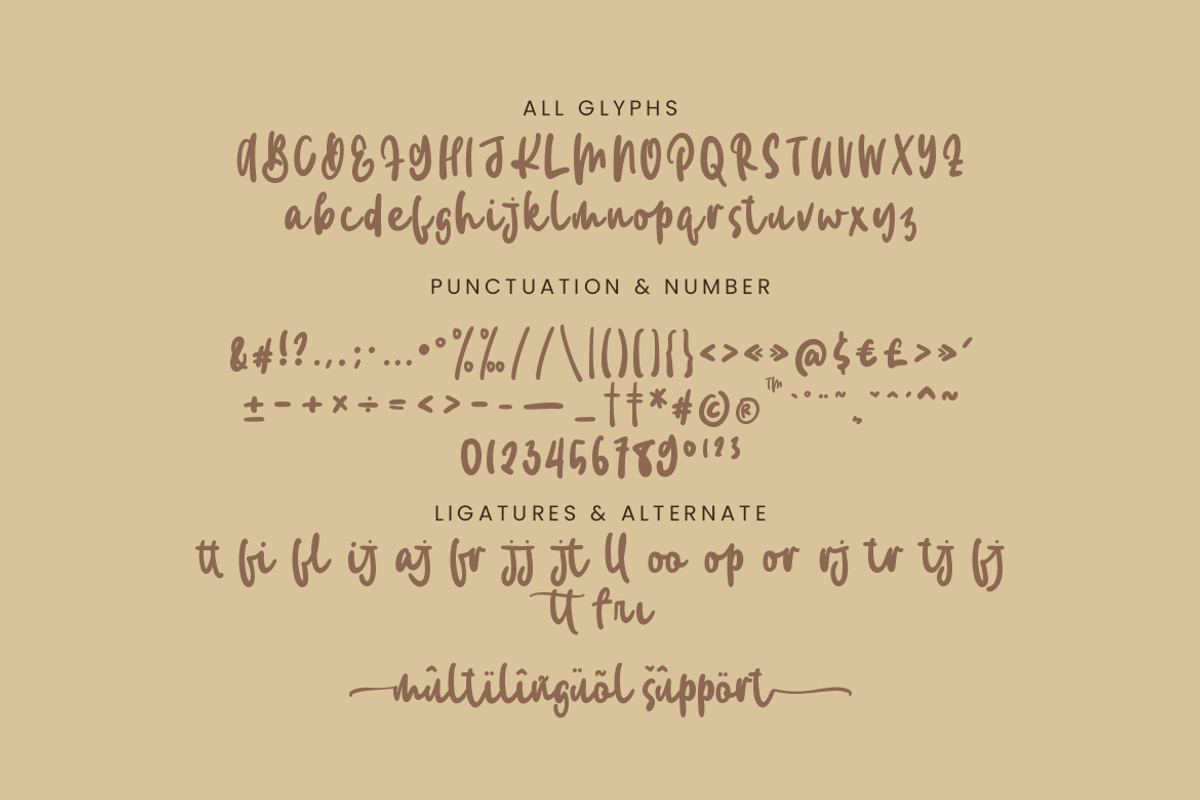 ALL GLYPHS
ABCDEFGHIJKLMNOPQRSTUVWXYZ
abcdefghijklmnopqrstuvwxyz
PUNCTUATION & NUMBER
&#!?.,.;·...•°%‰//\|()[]{}<>«»@$€£>»´
±-+×÷=<>--—_†‡*#©®™`°¨~¸ˇ^´^~
0123456789⁰¹²³
LIGATURES & ALTERNATE
tt fi fl ij aj fr jj jt ll oo op or rj tr tj fj
tt fru
mûltïlîñgüõl šûppört